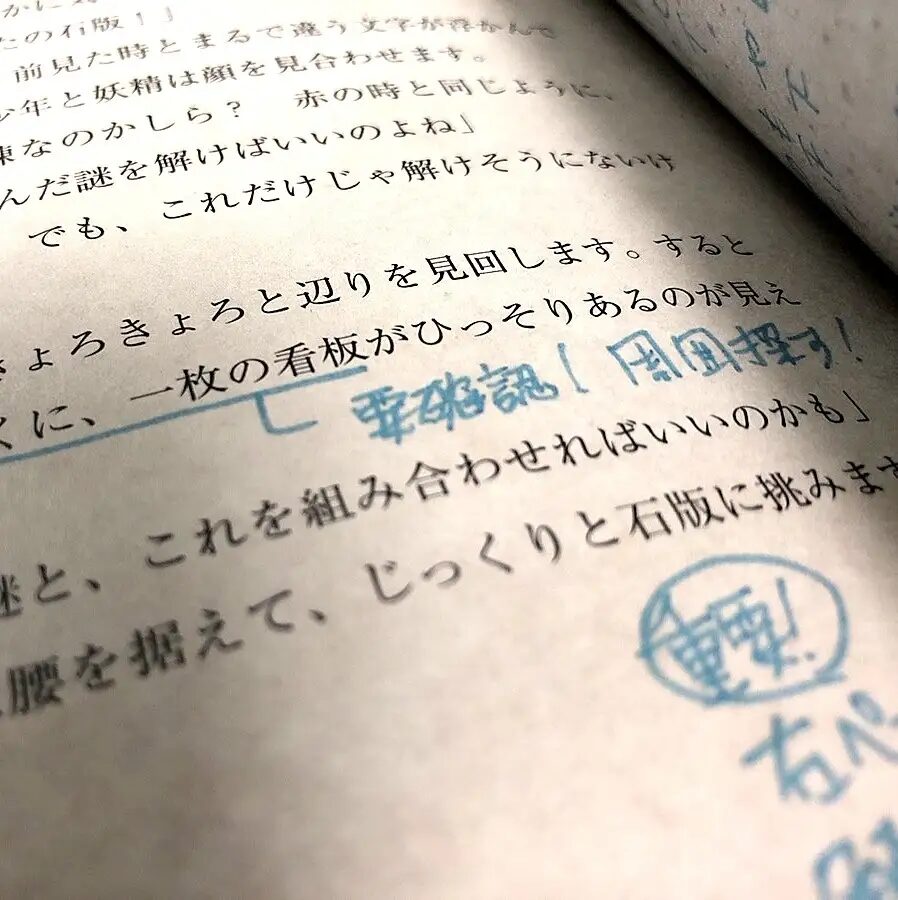 たの石版！」
前見た時とまるで違う文字が浮かんで
少年と妖精は顔を見合わせます。
なのかしら？　赤の時と同じように、
んだ謎を解けばいいのよね」
でも、これだけじゃ解けそうにないけ
きょろきょろと辺りを見回します。すると
くに、一枚の看板がひっそりあるのが見え
要確認！ 周囲探す！
謎と、これを組み合わせればいいのかも」
腰を据えて、じっくりと石版に挑みます
重要！
右ペー